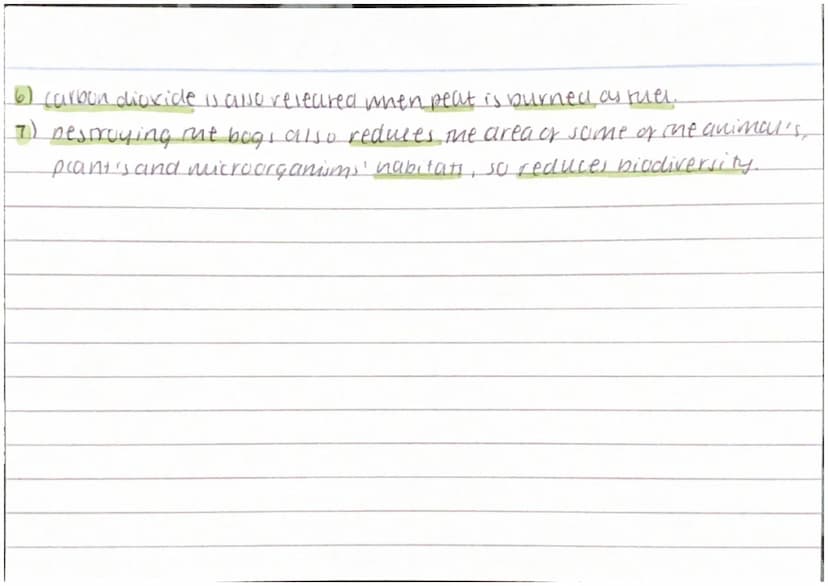 6) carbon dioxide is also released when peat is burned as fuel.
7) Destroying the bogs also reduces the area of some of the animal's,
plant's and microorganisms' habitats, so reduces biodiversity.